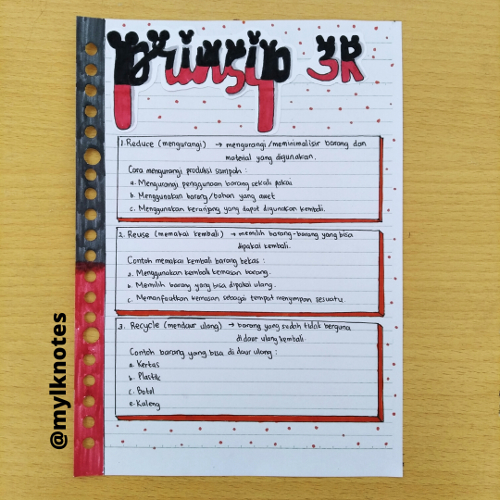 prinsip 3R
1. Reduce (mengurangi) → mengurangi/meminimalisir barang dan
material yang digunakan.
Cara mengurangi produksi sampah :
a. Mengurangi penggunaan barang sekali pakai
b. Menggunakan barang/bahan yang awet
c. Menggunakan keranjang yang dapat digunakan kembali.
2. Reuse (memakai kembali) → memilih barang-barang yang bisa
dipakai kembali.
Contoh memakai kembali barang bekas :
a. Menggunakan kembali kemasan barang.
b. Memilih barang yang bisa dipakai ulang.
c. Memanfaatkan kemasan sebagai tempat menyimpan sesuatu.
3. Recycle (mendaur ulang) → barang yang sudah tidak berguna
di daur ulang kembali
Contoh barang yang bisa di daur ulang :
a. Kertas
b. Plastik
c. Botol
e. Kaleng
@mylknotes